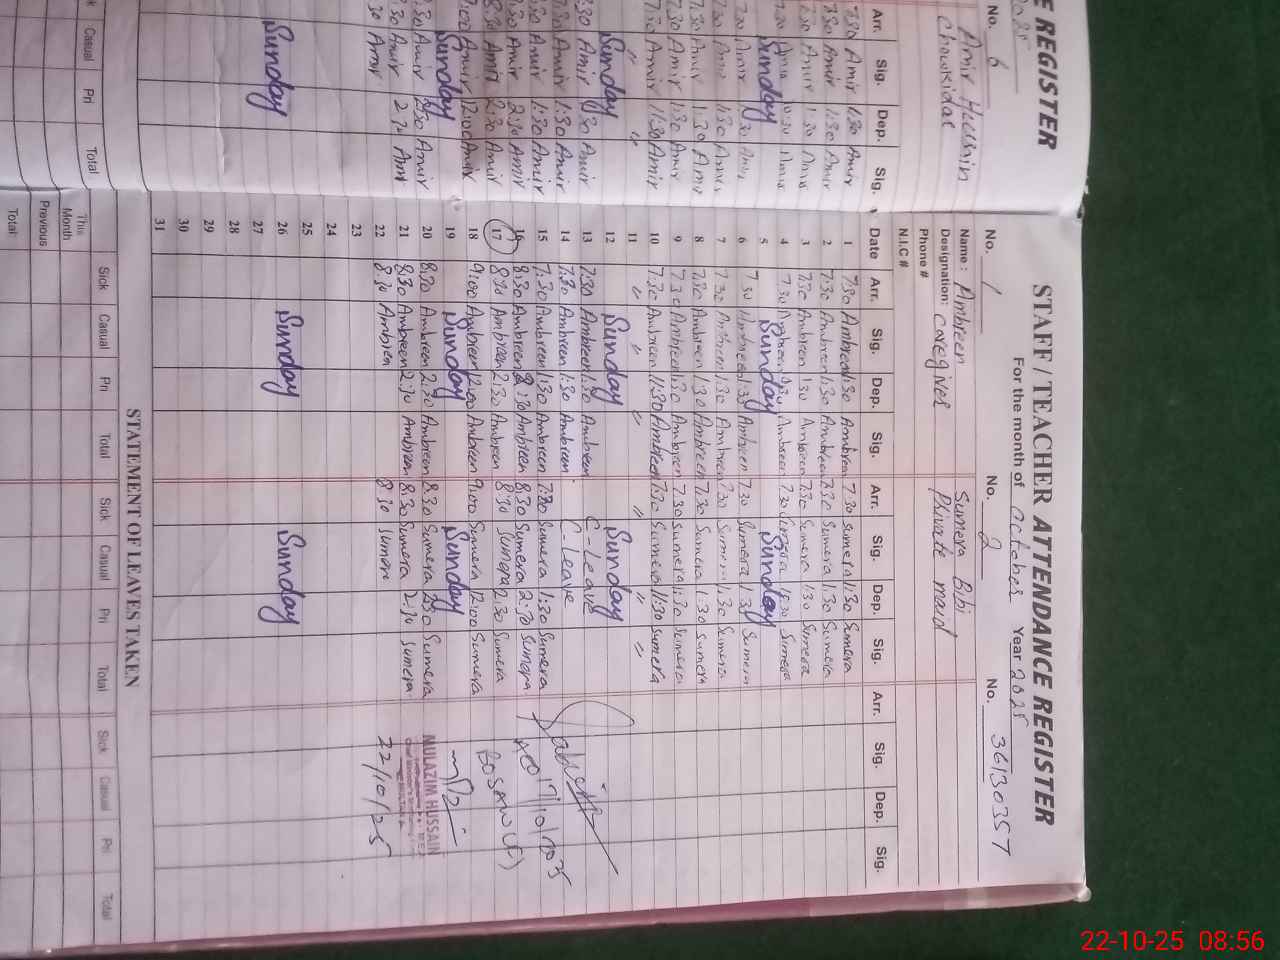 E REGISTER
No. 6
Amir Hussain
Chowkidar
Arr. Sig. Dep. Sig.
7:30 Amir 1:30 Amir
7:30 Amir 1:30 Amir
7:30 Amir 1:30 Amir
Sunday
7:30 Amir 1:30 Amir
7:30 Amir 1:30 Amir
7:30 Amir 1:30 Amir
7:30 Amir 1:30 Amir
7:30 Amir 11:30 Amir
" "
Sunday
Amir 1:30 Amir
7:30 Amir 1:30 Amir
Amir 1:30 Amir
8:30 Amir 2:30 Amir
8:30 Amir 2:30 Amir
9:00 Amir 12:00 Amir
Sunday
8:30 Amir 2:30 Amir
8:30 Amir 2:30 Amir
Amir
Sunday
Casual Pri Total
STAFF / TEACHER ATTENDANCE REGISTER
For the month of October Year 2025
No. 1 No. 2 No. 3613035T
Name: Ambreen Sumera Bibi
Designation: Caregiver Private maid
Phone #
N.I.C #
Date Arr. Sig. Dep. Sig. Arr. Sig. Dep. Sig. Arr. Sig. Dep. Sig.
1 7:30 Ambreen 1:30 Ambreen 7:30 Sumera 1:30 Sumera
2 7:30 Ambreen 1:30 Ambreen 7:30 Sumera 1:30 Sumera
3 7:30 Ambreen 1:30 Ambreen 7:30 Sumera 1:30 Sumera
4 7:30 Ambreen Ambreen 7:30 Sumera Sumera
5 Sunday Sunday
6 7:30 Ambreen 1:30 Ambreen 7:30 Sumera 1:30 Sumera
7 7:30 Ambreen 1:30 Ambreen 7:30 Sumera 1:30 Sumera
8 7:30 Ambreen 1:30 Ambreen 7:30 Sumera 1:30 Sumera
9 7:30 Ambreen 1:30 Ambreen 7:30 Sumera 1:30 Sumera
10 7:30 Ambreen 11:30 Ambreen 7:30 Sumera 11:30 Sumera
11 " " " " " "
12 Sunday Sunday
13 7:30 Ambreen 1:30 Ambreen C-Leave
14 7:30 Ambreen 1:30 Ambreen C-Leave
15 7:30 Ambreen 1:30 Ambreen 7:30 Sumera 1:30 Sumera
16 8:30 Ambreen Ambreen 8:30 Sumera 2:30 Sumera
17 8:30 Ambreen 2:30 Ambreen 8:30 Sumera 2:30 Sumera
18 9:00 Ambreen 12:00 Ambreen 9:00 Sumera 12:00 Sumera
19 Sunday Sunday
20 8:30 Ambreen 2:30 Ambreen 8:30 Sumera 2:30 Sumera
21 8:30 Ambreen 2:30 Ambreen 8:30 Sumera 2:30 Sumera
22 8:30 Ambreen 8:30 Sumera
23
24
25
26 Sunday Sunday
27
28
29
30
31
17/10/2025
MULAZIM HUSSAIN
22/10/25
STATEMENT OF LEAVES TAKEN
Sick Casual Pri Total Sick Casual Pri Total Sick Casual Pri Total
This Month
Previous
Total
22-10-25 08:56